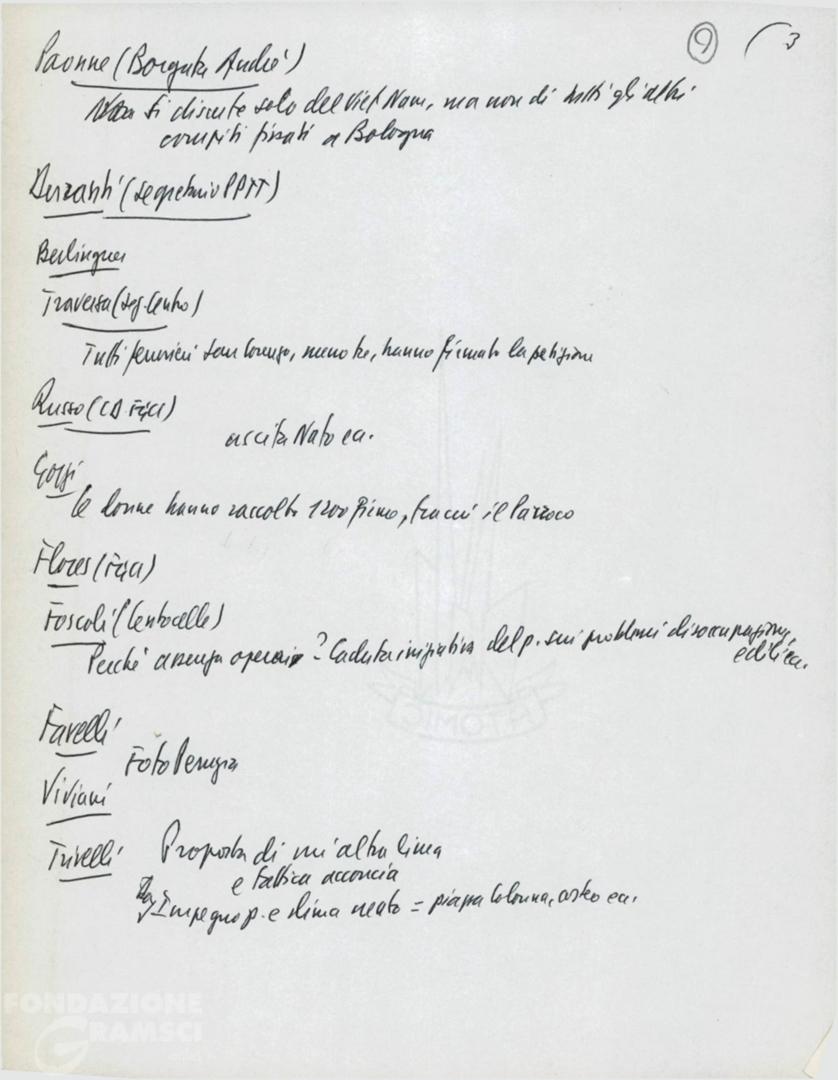 9 3
Pavone (Borgata André)
Si discute solo del Viet Nam, ma non di tutti gli altri
compiti fissati a Bologna
(segretario PPTT)
Berlinguer
Traversa (seg. Centro)
Tutti ferrovieri San Lorenzo, meno tre, hanno firmato la petizione
Russo (CD FGCI)
uscita Nato ecc.
le donne hanno raccolto 1200 firme, fra cui il Parroco
Flores (FGCI)
Foscoli (Centocelle)
Perché assenza operaia? Caduta iniziativa del p. sui problemi disoccupazione,
edili ecc.
Favelli
Foto Perugia
Viviani
Trivelli Proposta di un'altra linea
e tattica acconcia
Impegno p. e clima neato = piazza Colonna, corteo ecc.
FONDAZIONE
GRAMSCI